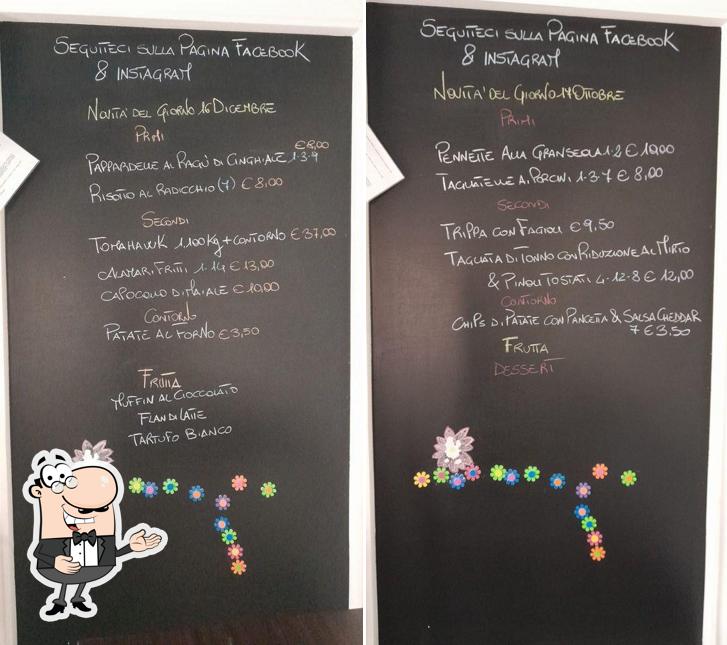 SEGUITECI SULLA PAGINA FACEBOOK
& INSTAGRAM
NOVITA' DEL GIORNO 16 DICEMBRE
PRIMI
PAPPARDELLE AL RAGÙ DI CINGHIALE 1-3-9 €8,00
RISOTTO AL RADICCHIO (7) €8,00
SECONDI
TOMAHAWK 1,100 Kg + CONTORNO €37,00
CALAMARI FRITTI 1-14 €13,00
CAPOCOLLO DI MAIALE €10,00
CONTORNO
PATATE AL FORNO €3,50
FRUTTA
MUFFIN AL CIOCCOLATO
FLAN DI LATTE
TARTUFO BIANCO
SEGUITECI SULLA PAGINA FACEBOOK
& INSTAGRAM
NOVITA' DEL GIORNO 17 OTTOBRE
PRIMI
PENNETTE ALLA GRANSEOLA 1-2 € 10,00
TAGLIATELLE AI PORCINI 1-3-7 € 8,00
SECONDI
TRIPPA CON FAGIOLI € 9,50
TAGLIATA DI TONNO CON RIDUZIONE AL MIRTO
& PINOLI TOSTATI 4-12-8 € 12,00
CONTORNO
CHIPS DI PATATE CON PANCETTA & SALSA CHEDDAR
7 € 3,50
FRUTTA
DESSERT